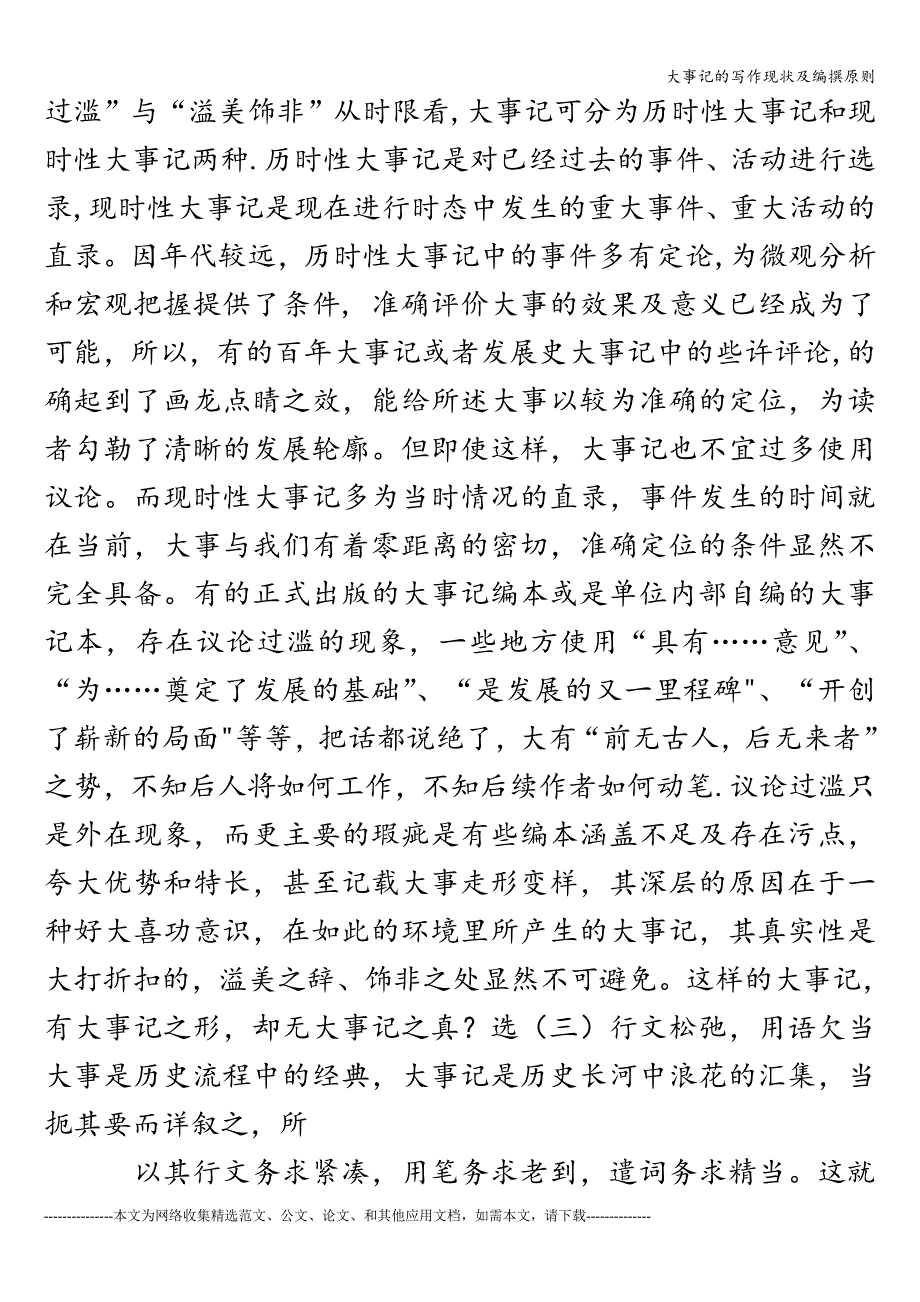 大事记的写作现状及编撰原则
过滥”与“溢美饰非”从时限看,大事记可分为历时性大事记和现
时性大事记两种.历时性大事记是对已经过去的事件、活动进行选
录,现时性大事记是现在进行时态中发生的重大事件、重大活动的
直录。因年代较远，历时性大事记中的事件多有定论,为微观分析
和宏观把握提供了条件，准确评价大事的效果及意义已经成为了
可能，所以，有的百年大事记或者发展史大事记中的些许评论,的
确起到了画龙点睛之效，能给所述大事以较为准确的定位，为读
者勾勒了清晰的发展轮廓。但即使这样，大事记也不宜过多使用
议论。而现时性大事记多为当时情况的直录，事件发生的时间就
在当前，大事与我们有着零距离的密切，准确定位的条件显然不
完全具备。有的正式出版的大事记编本或是单位内部自编的大事
记本，存在议论过滥的现象，一些地方使用“具有……意见”、
“为……奠定了发展的基础”、“是发展的又一里程碑"、“开创
了崭新的局面"等等，把话都说绝了，大有“前无古人，后无来者”
之势，不知后人将如何工作，不知后续作者如何动笔.议论过滥只
是外在现象，而更主要的瑕疵是有些编本涵盖不足及存在污点，
夸大优势和特长，甚至记载大事走形变样，其深层的原因在于一
种好大喜功意识，在如此的环境里所产生的大事记，其真实性是
大打折扣的，溢美之辞、饰非之处显然不可避免。这样的大事记，
有大事记之形，却无大事记之真？选（三）行文松弛，用语欠当
大事是历史流程中的经典，大事记是历史长河中浪花的汇集，当
扼其要而详叙之，所
以其行文务求紧凑，用笔务求老到，遣词务求精当。这就
---------------本文为网络收集精选范文、公文、论文、和其他应用文档，如需本文，请下载--------------